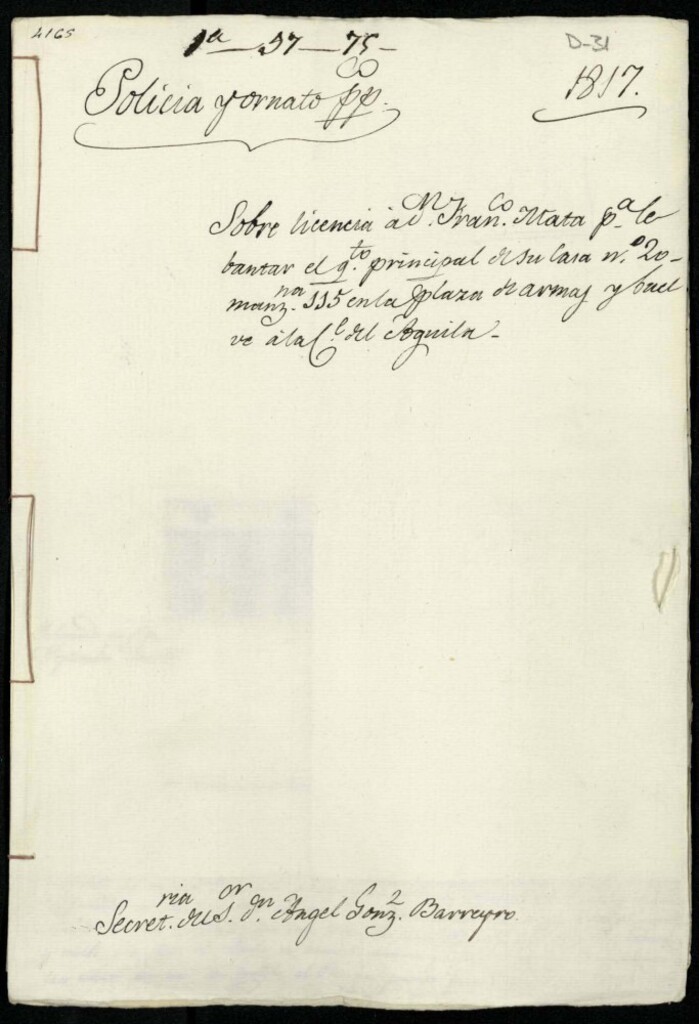 4165
1ª - 57 - 75 -
D-31
Policia y ornato ppco.
1817.
Sobre licencia à dn. Franco. Mata pa. le
bantar el qto. principal de su Casa n.º 20-
manzna. 115 en la plaza de armas y buel
ve à la Ce. del Aguila-
Secretria. del Sor. dn. Angel Gonz2. Barreyro